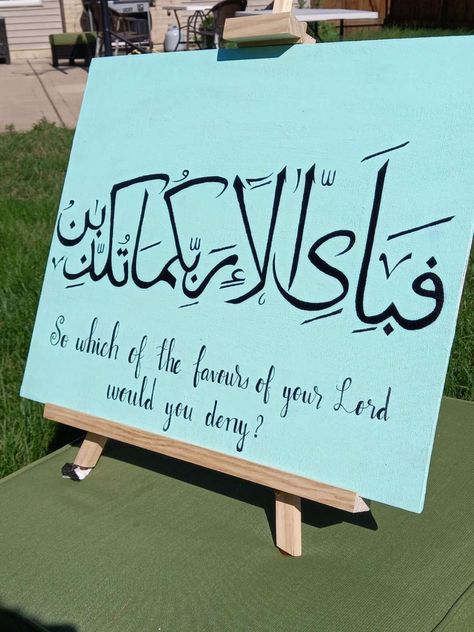 فَبِأَيِّ آلَاءِ رَبِّكُمَا تُكَذِّبَانِ
So which of the favours of your Lord
would you deny?